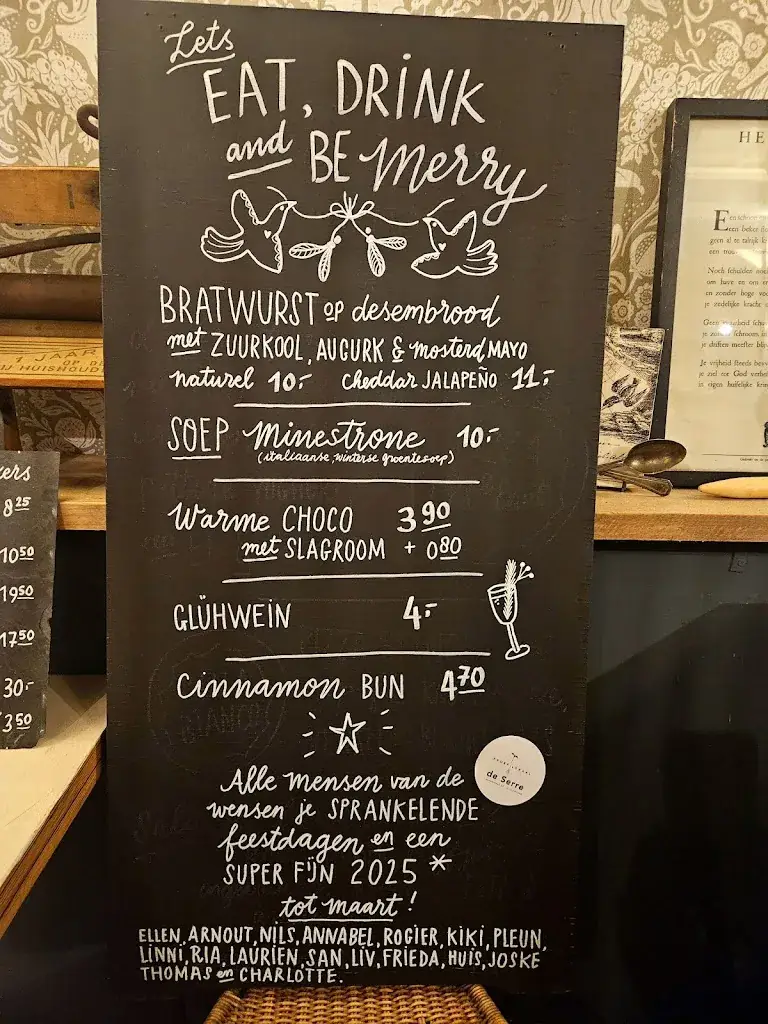 Lets
EAT, DRINK
and BE Merry
BRATWURST op desembrood
met ZUURKOOL, AUGURK & mosterd MAYO
naturel 10,- cheddar JALAPEÑO 11,-
SOEP Minestrone 10,-
(italiaanse, winterse groentesoep)
Warme CHOCO 3 90
met SLAGROOM + 0 80
GLÜHWEIN 4,-
Cinnamon BUN 4 70
Alle mensen van de
de Serre
wensen je SPRANKELENDE
feestdagen en een
SUPER FIJN 2025 *
tot maart!
ELLEN, ARNOUT, NILS, ANNABEL, ROGIER, KIKI, PLEUN,
LINNI, RIA, LAURIEN, SAN, LIV, FRIEDA, HUIS, JOSKE
THOMAS en CHARLOTTE.
1 JAAR
8 25
10 50
19 50
17 50
30,-
3 50
HE